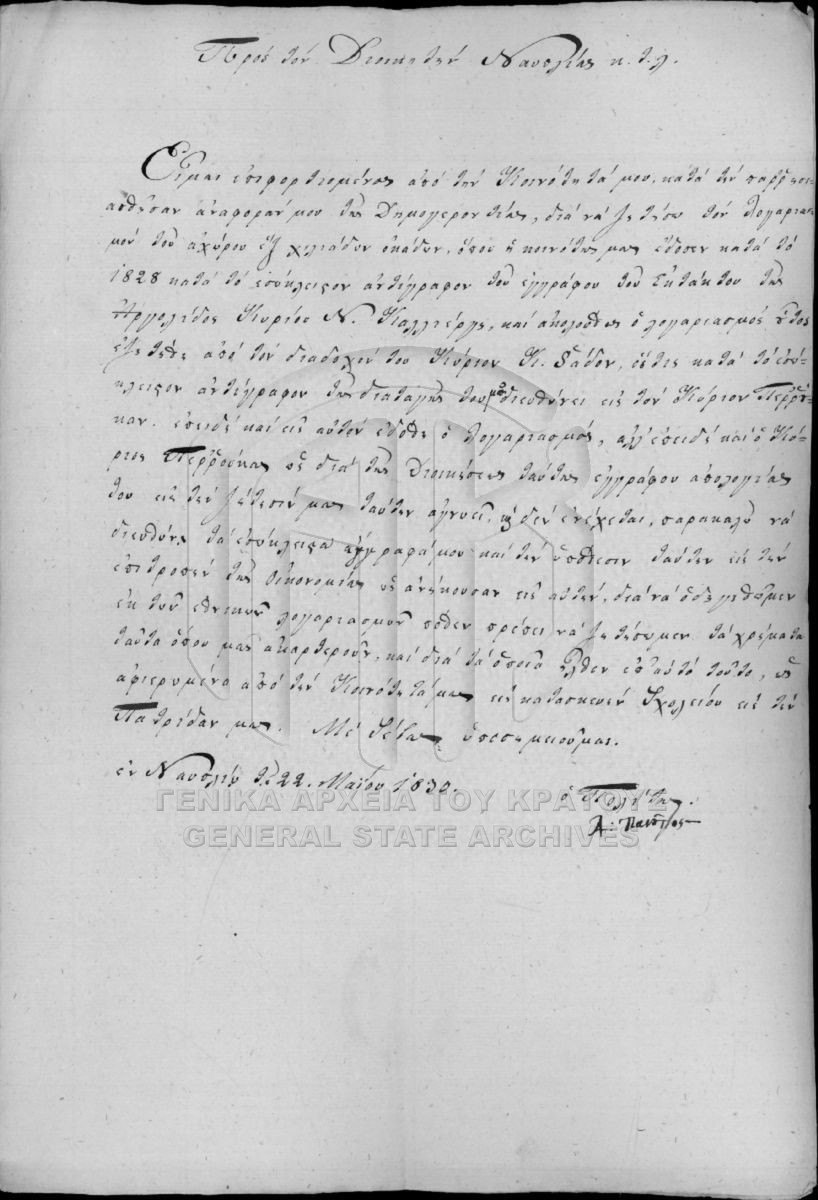 Πρὸς τὸν Διοικητὴν Ναυπλίας κ. τ. λ.
Εἶμαι ἐπιφορτισμένος ἀπὸ τὴν Κοινότητά μου, κατὰ τὴν παρρησι-
ασθεῖσαν ἀναφοράν μου τῆς Δημογεροντίας, διὰ νὰ ζητήσω τὸν λογαριασ-
μὸν τοῦ ἀχύρου ἓξ χιλιάδων ὀκάδων, ὁποῦ ἡ κοινότης μας ἔδοσεν κατὰ τὸ
1828 κατὰ τὸ ἐσώκλειστον ἀντίγραφον τοῦ ἐγγράφου τοῦ Ἐκτάκτου τῆς
Ἀργολίδος Κυρίου Ν. Καλλέργη, καὶ ἀκολούθως ὁ λογαριασμὸς οὗτος
ἐζητήθη ἀπὸ τὸν διάδοχόν του Κύριον Κ. Ῥάδον, ὅστις κατὰ τὸ ἐσώ-
κλειστον ἀντίγραφον τῆς διαταγῆς του μᾶς διευθύνει εἰς τὸν Κύριον Περρού-
καν. ἐπειδὴ καὶ εἰς αὐτὸν ἐδόθη ὁ λογαριασμός, ἀλλ' ἐπειδὴ καὶ ὁ Κύ-
ριος Περρούκας διὰ τῆς Διοικήσεως ταύτης ἐγγράφου ἀπολογίας
του εἰς τὴν ζήτησίν μας ταύτην ἀγνοεῖ, καὶ δὲν ἐνέχεται, παρακαλῶ νὰ
διευθύνῃ τὰ ἐσώκλειστα ἔγγραφά μου καὶ τὴν ὑπόθεσιν ταύτην εἰς τὴν
ἐπιτροπὴν τῆς Οἰκονομίας ὡς ἀνήκουσαν εἰς αὐτήν, διὰ νὰ ὁδηγηθῶμεν
ἐκ τῶν ἐθνικῶν λογαριασμῶν πόθεν πρέπει νὰ ζητήσωμεν τὰ χρήματα
ταῦτα ὁποῦ μας ἀκαρτεροῦν, καὶ διὰ τὰ ὁποῖα ἦλθον ἐπ' αὐτὸ τοῦτο, ὡς
ἀφιερωμένα ἀπὸ τὴν Κοινότητά μας εἰς κατασκευὴν Σχολείου εἰς τὴν
Πατρίδαν μας. Μὲ Σέβας ὑποσημειοῦμαι.
ἐν Ναυπλίῳ τῇ 22. Μαΐου 1830.
ὁ Πολίτης.
Α:
ΓΕΝΙΚΑ ΑΡΧΕΙΑ ΤΟΥ ΚΡΑΤΟΥΣ
GENERAL STATE ARCHIVES